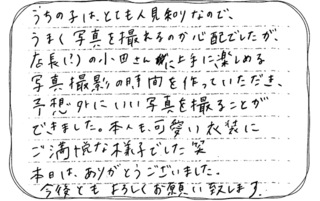 うちの子は、とても人見知りなので、
うまく写真を撮れるのか心配でしたが、
店長(?)の小田さんに上手に楽しめる
写真撮影の時間を作っていただき、
予想外にいい写真を撮ることが
できました。本人も、可愛い衣装に
ご満悦な様子でした笑
本日は、ありがとうございました。
今後ともよろしくお願い致します。